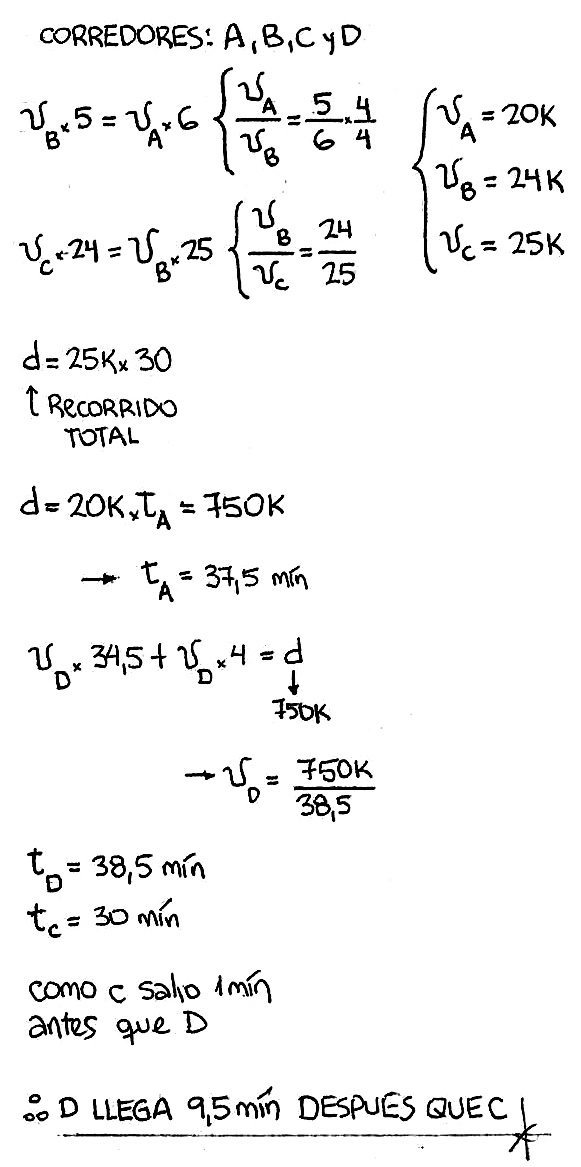 CORREDORES: A, B, C y D
V_B × 5 = V_A × 6 { V_A / V_B = 5/6 × 4/4 { V_A = 20K
V_B = 24K
V_C × 24 = V_B × 25 { V_B / V_C = 24/25 V_C = 25K
d = 25K × 30
↑ RECORRIDO
TOTAL
d = 20K × t_A = 750K
→ t_A = 37,5 mín
V_D × 34,5 + V_D × 4 = d
↓
750K
→ V_D = 750K / 38,5
t_D = 38,5 mín
t_C = 30 mín
como c salio 1 mín
antes que D
∴ D LLEGA 9,5 mín DESPUÉS QUE C